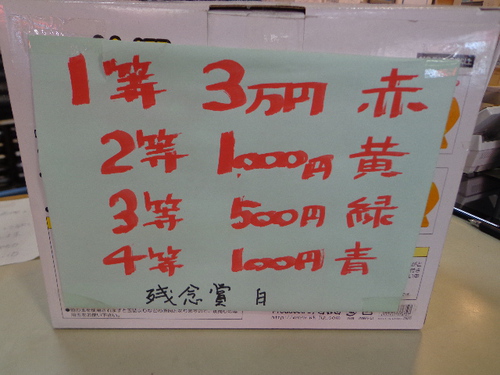 1等 3万円 赤
2等 1,000円 黄
3等 500円 緑
4等 100円 青
残念賞 白